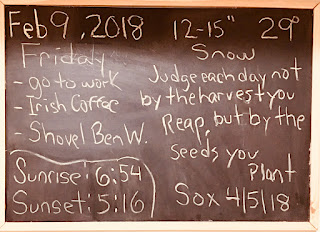 Feb 9, 2018 12-15" 29°
Friday Snow
- go to work
- Irish Coffee
- Shovel Ben W.
Judge each day not
by the harvest you
Reap, but by the
seeds you
Plant
Sunrise: 6:54
Sunset: 5:16
Sox 4/5/18